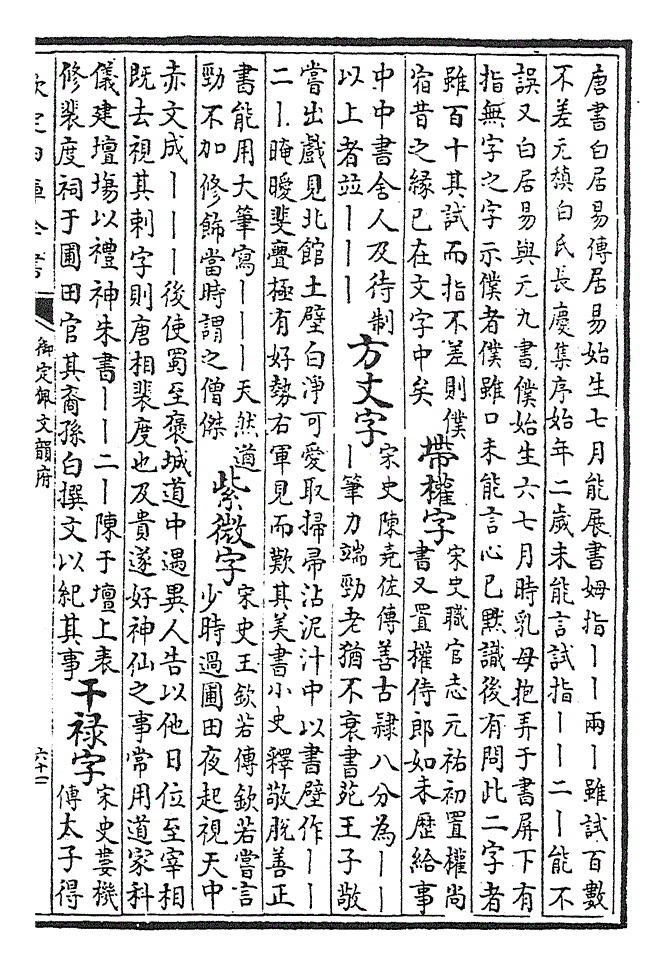 唐書白居易傳居易始生七月能展書姆指丨丨兩丨雖試百數
不差元稹白氏長慶集序始年二歲未能言試指丨丨二丨能不
誤又白居易與元九書僕始生六七月時乳母抱弄于書屏下有
指無字之字示僕者僕雖口未能言心已默識後有問此二字者
雖百十其試而指不差則僕
宿昔之緣已在文字中矣
帶權字
宋史職官志元祐初置權尚
書又置權侍郎如未歷給事
中中書舍人及待制
以上者竝丨丨丨
方丈字
宋史陳堯佐傳善古隸八分為丨丨
丨筆力端勁老猶不衰書苑王子敬
嘗出戲見北館土壁白淨可愛取掃帚沾泥汁中以書壁作丨丨
二丨晻曖斐亹極有好勢右軍見而歎其美書小史釋敬脫善正
書能用大筆寫丨丨丨天然遒
勁不加修飾當時謂之僧傑
紫微字
宋史王欽若傳欽若嘗言
少時過圃田夜起視天中
赤文成丨丨丨後使蜀至褒城道中遇異人告以他日位至宰相
既去視其刺字則唐相裴度也及貴遂好神仙之事常用道家科
儀建壇塲以禮神朱書丨丨二丨陳于壇上表
修裴度祠于圃田官其裔孫自撰文以紀其事
干禄字
宋史婁機
傳太子得
欽定四庫全書
御定佩文韻府